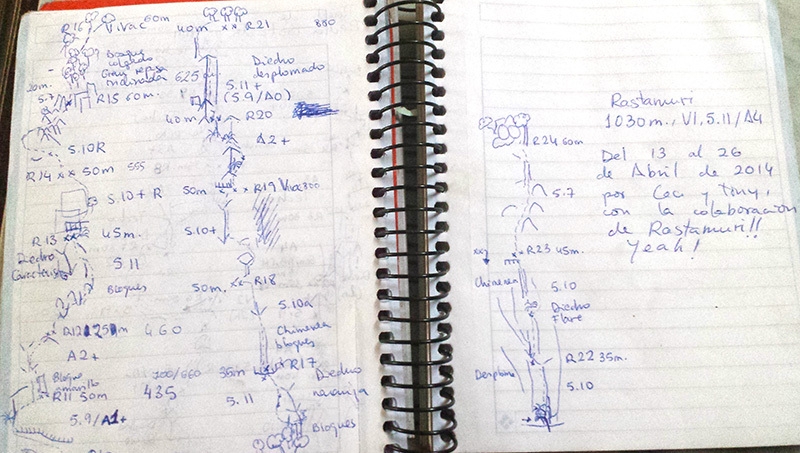 R16 Vivac 60m
Bloque
colgado
Gran repisa
inclinada
20m.
5.7
R15 60m.
5.10R
R14 50m 555
5.10+ R
R13 45m.
Diedro
Característico
5.11
Bloques
R12 25m 460
A2+
Bloque
amarillo
700/660
R11 50m 435
5.9/A1+
40m R21 880
Diedro
desplomado
625
5.11+
(5.9/A0)
40m R20
A2+
50m R19 Vivac 800
5.10+
50m. R18
5.10a
Chimenea
bloques
35m R17
5.11
Diedro
naranja
Bloques
R24 60m
5.7
R23 45m.
Chimenea
5.10
Diedro
Flare
R22 35m.
Desplome
5.10
Rastamuri
1030m., VI, 5.11/A4
Del 13 al 26
de Abril de 2014
por Ceci y Tony,
con la colaboración
de Rastamuri!!
Yeah!